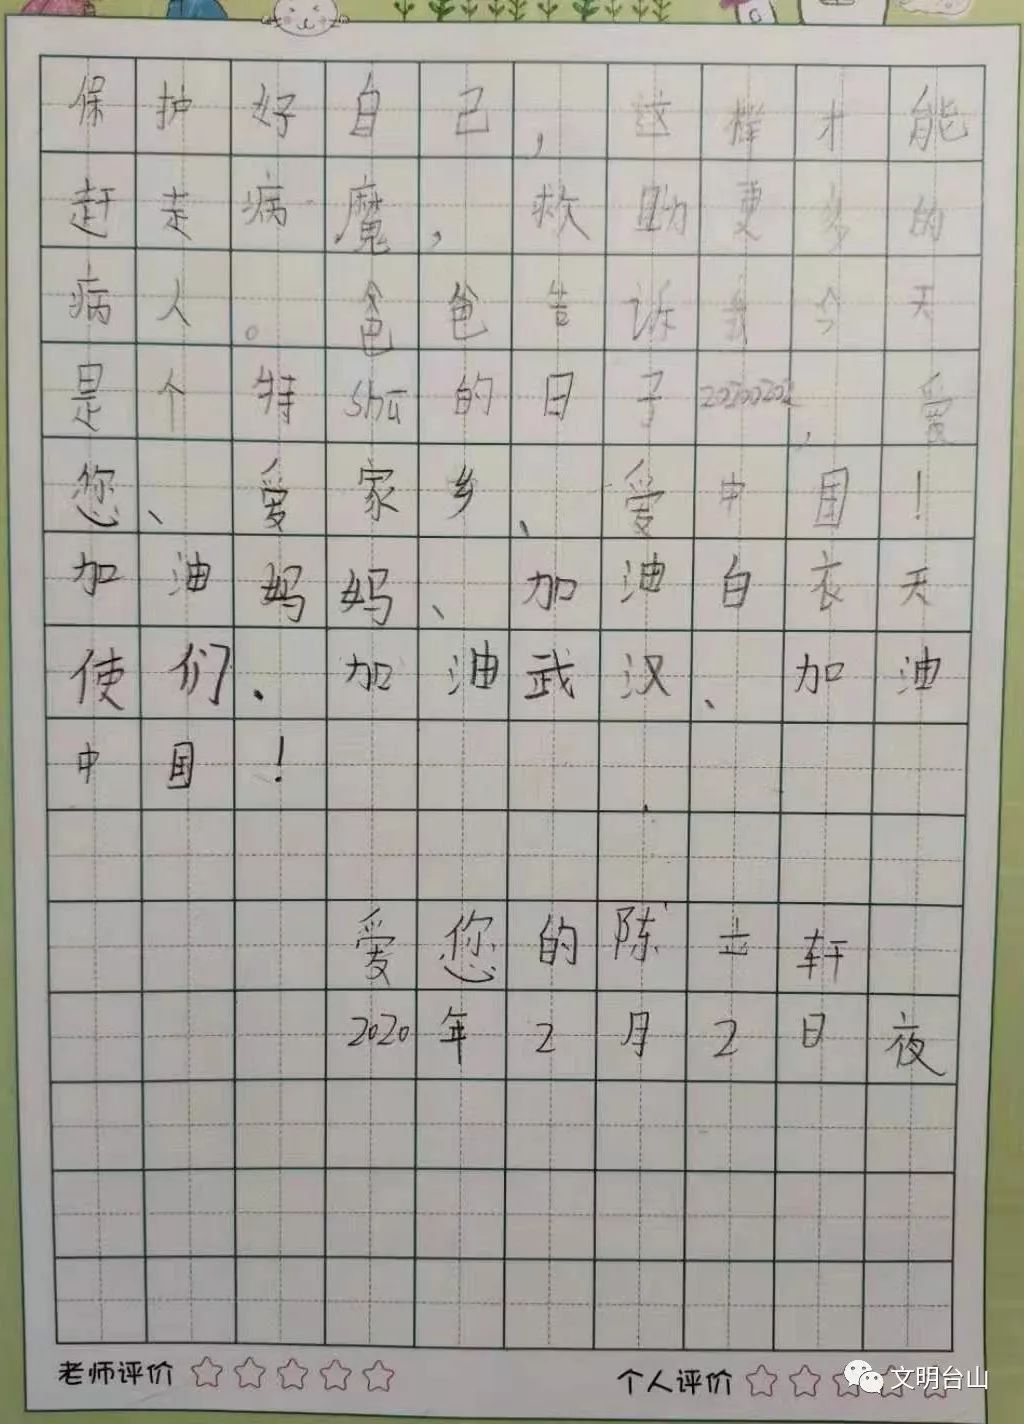 保护好自己,这样才能
赶走病魔,救助更多的
病人。爸爸告诉我今天
是个特shū的日子20200202,爱
您、爱家乡、爱中国!
加油妈妈、加油白衣天
使们、加油武汉、加油
中国!
爱您的陈立轩
2020年2月2日夜
老师评价 个人评价
文明台山